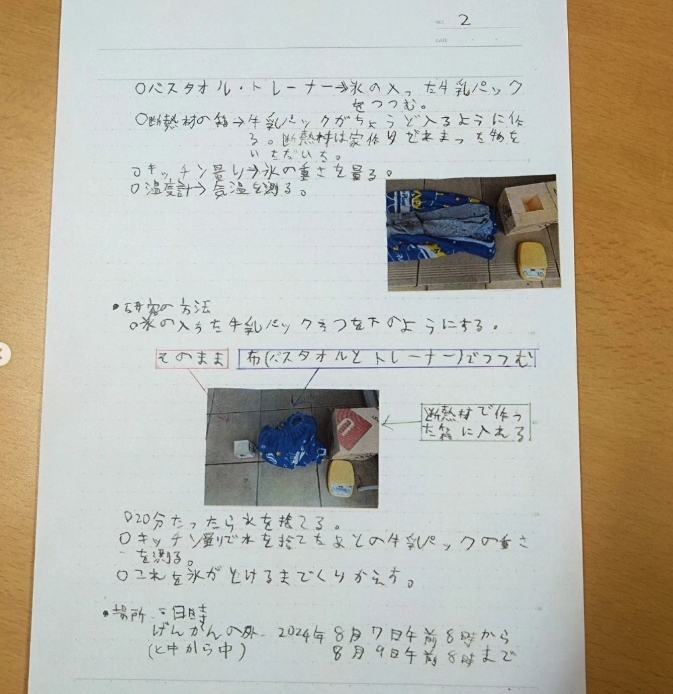 NO. 2
DATE
○バスタオル・トレーナー→氷の入った牛乳パック
をつつむ。
○断熱材の箱→牛乳パックがちょうど入るように作
る。断熱材は家作りであまった物を
いただいた。
○キッチン量り→氷の重さを量る。
○温度計→気温を測る。
•研究の方法
○氷の入った牛乳パック3つを下のようにする。
そのまま 布(バスタオルとトレーナー)でつつむ
断熱材で作っ
た箱に入れる
○20分たったら水を捨てる。
○キッチン量りで水を捨てたあとの牛乳パックの重さ
を測る。
○これを氷がとけるまでくりかえす。
•場所・日時
げんかんの外 2024年8月7日午前8時から
(と中から中) 8月9日午前8時まで